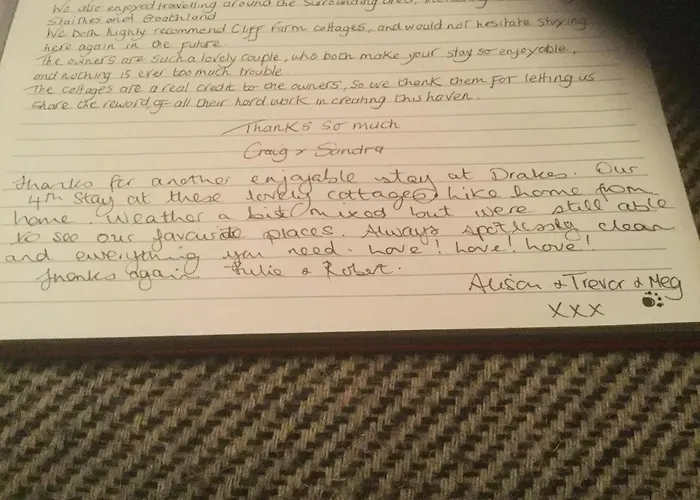 We also enjoyed travelling around the surrounding area,
Staithes and Goathland
We both highly recommend Cliff Farm cottages, and would not hesitate staying
here again in the future.
The owners are such a lovely couple, who both make your stay so enjoyable,
and nothing is ever too much trouble.
The cottages are a real credit to the owners, so we thank them for letting us
share the reward of all their hard work in creating this haven.
Thanks so much
Craig & Sandra
Thanks for another enjoyable stay at Drakes. Our
4th stay at these lovely cottages like home from
home. Weather a bit mixed but were still able
to see our favourite places. Always spotlessly clean
and everything you need. Love! Love! Love!
Thanks again Julie & Robert.
Alison & Trevor & Meg
xxx